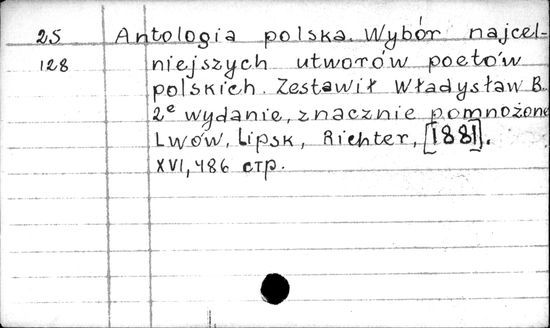 25 Antologia polska. Wybór najcel-
128 niejszych utworów poetów
polskich. Zestawił Władysław B.
2e wydanie, znacznie pomnożone
Lwów, Lipsk, Richter, [1881].
XVI, 486 стр.